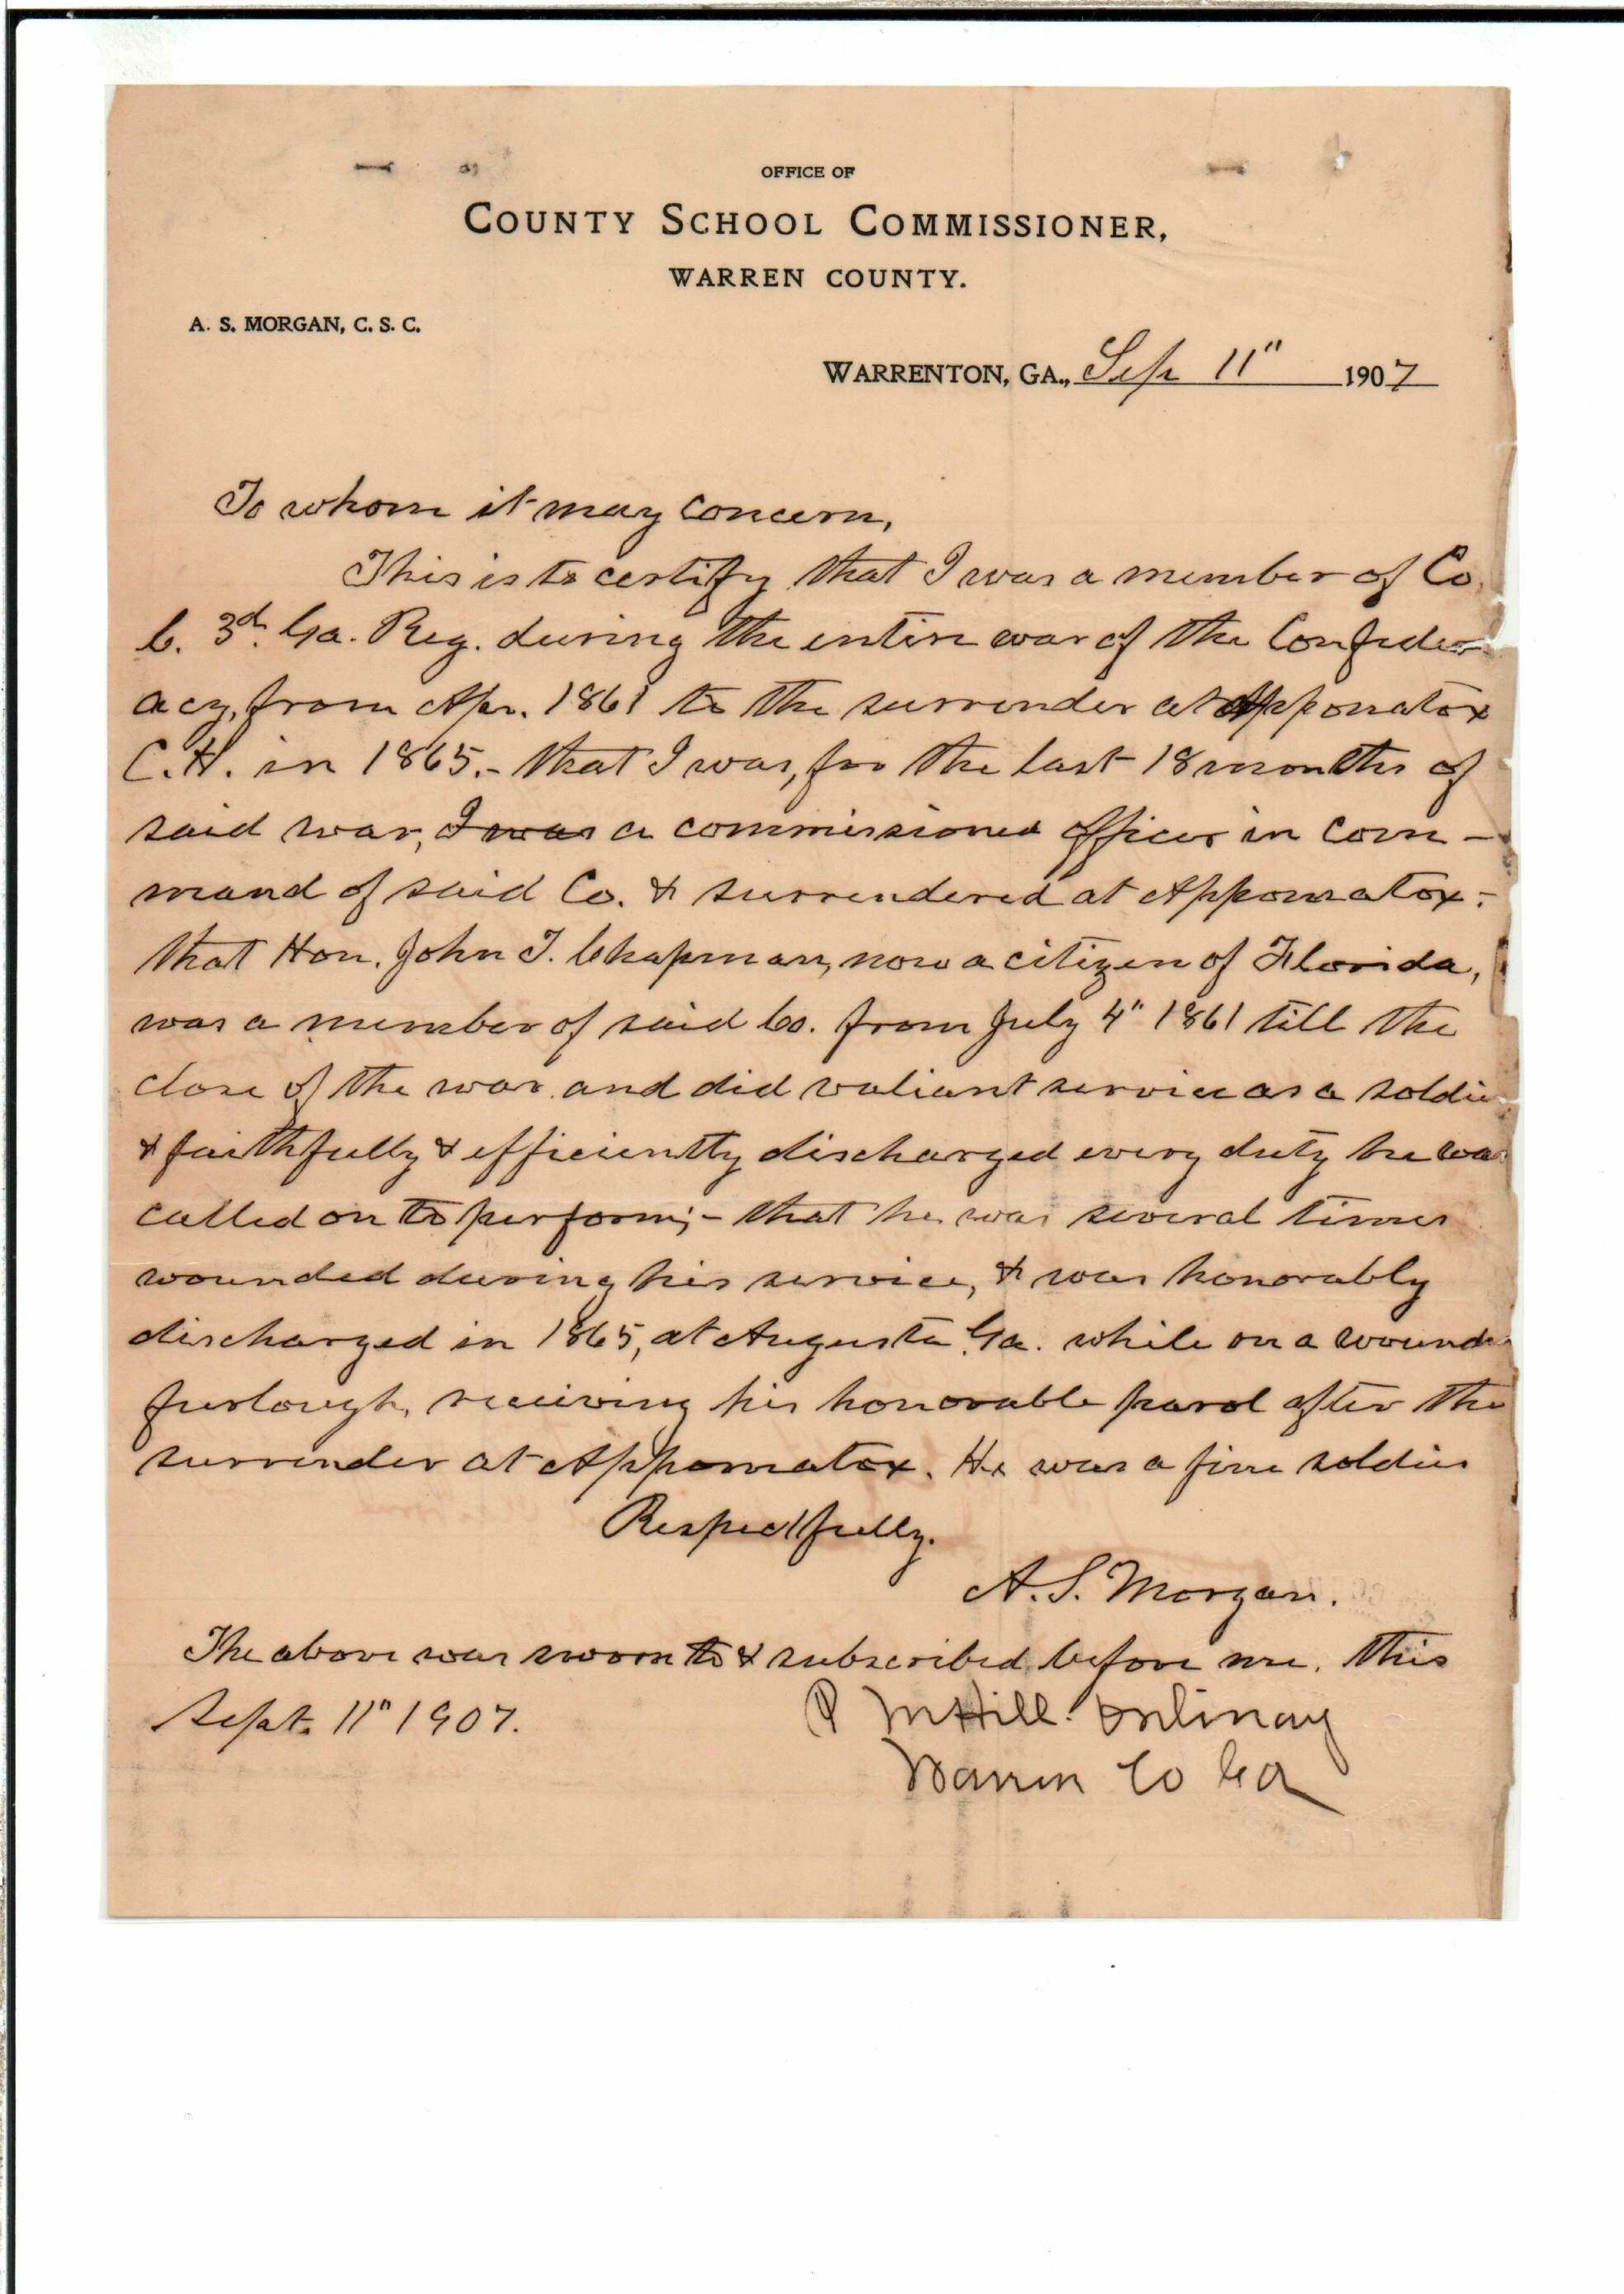 OFFICE OF
COUNTY SCHOOL COMMISSIONER,
WARREN COUNTY.
A. S. MORGAN, C. S. C.
WARRENTON, GA., Sep 11" 1907
To whom it may concern,
This is to certify that I was a member of Co
C. 3d. Ga. Reg. during the entire war of the Confeder
acy, from Apr. 1861 to the surrender at Appomatox
C.H. in 1865.- that I was, for the last 18 months of
said war, I was a commissioned officer in com-
mand of said Co. & surrendered at Appomatox;
that Hon. John T. Chapman, now a citizen of Florida,
was a member of said Co. from July 4" 1861 till the
close of the war and did valiant service as a soldie
& faithfully & efficiently discharged every duty he wa
called on to perform;- that he was several times
wounded during his service, & was honorably
discharged in 1865, at Augusta Ga. while on a wound
furlough, receiving his honorable parol after the
surrender at Appomatox. He was a fine soldier
Respectfully.
A.S. Morgan.
The above was sworn to & subscribed before me. this
Sept. 11" 1907. P M Hill. Ordinary
Warren Co Ga